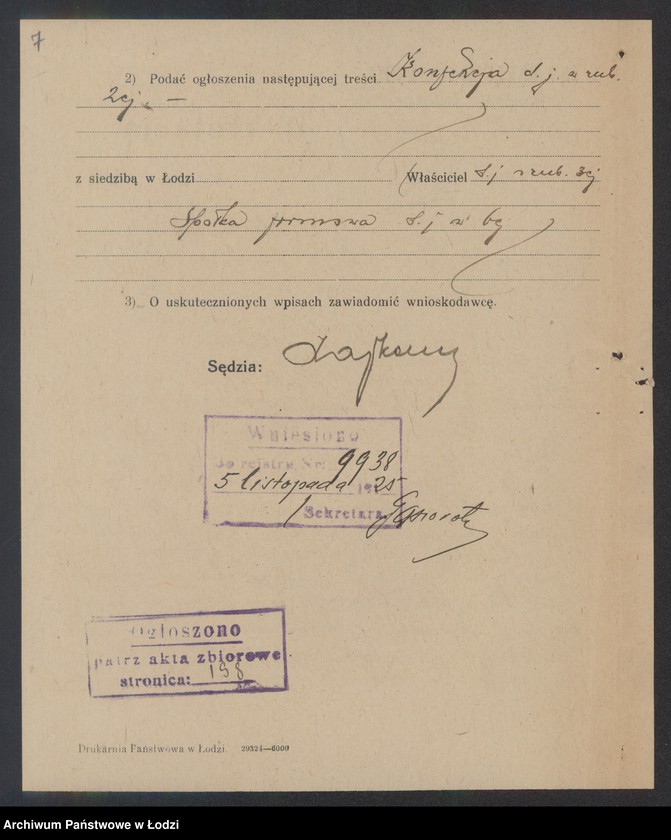 7
2) Podać ogłoszenia następującej treści Konfekcja d. j. w rub.
2ej. —
z siedzibą w Łodzi Właściciel d. j w rub. 3ej
Spółka firmowa d. j w
3) O uskutecznionych wpisach zawiadomić wnioskodawcę.
Sędzia:
Wniesiono
do rejestru Nr. 9938
5 listopada 1925
Sekretarz
Ogłoszono
patrz akta zbiorowe
stronica: 198
Drukarnia Państwowa w Łodzi. 29324—6000
Archiwum Państwowe w Łodzi